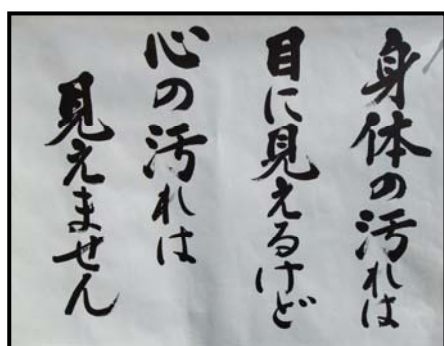 身体の汚れは
目に見えるけど
心の汚れは
見えません